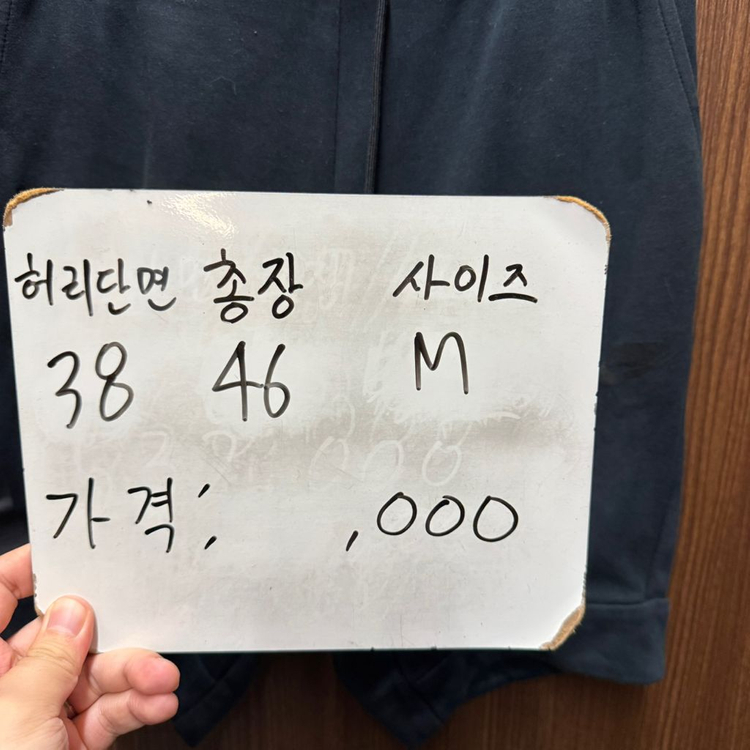 허리단면 총장 사이즈
38 46 M
가격: ,000